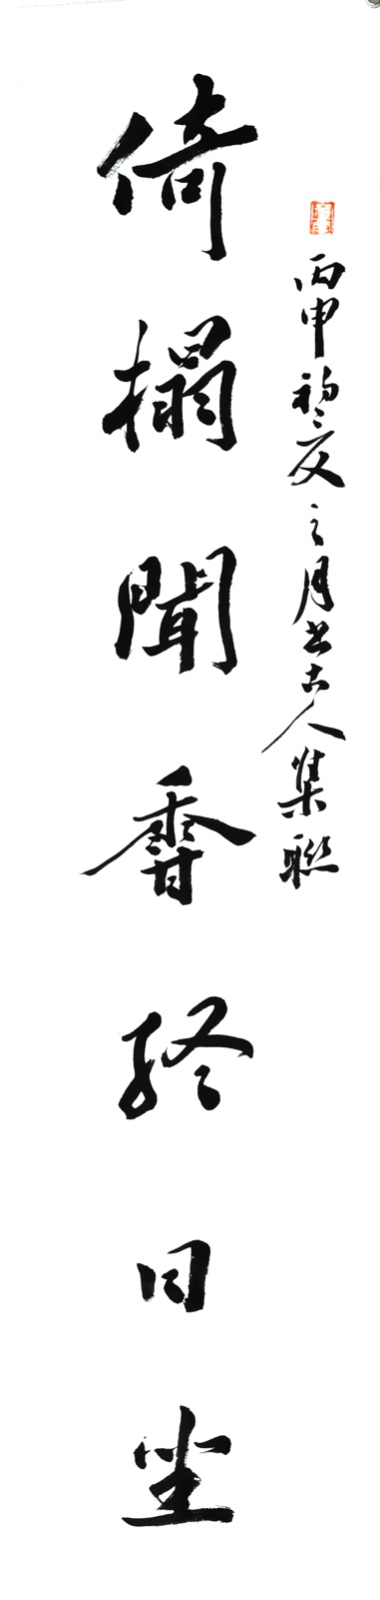 丙申初夏之月書古人集聯
倚榻聞香終日坐